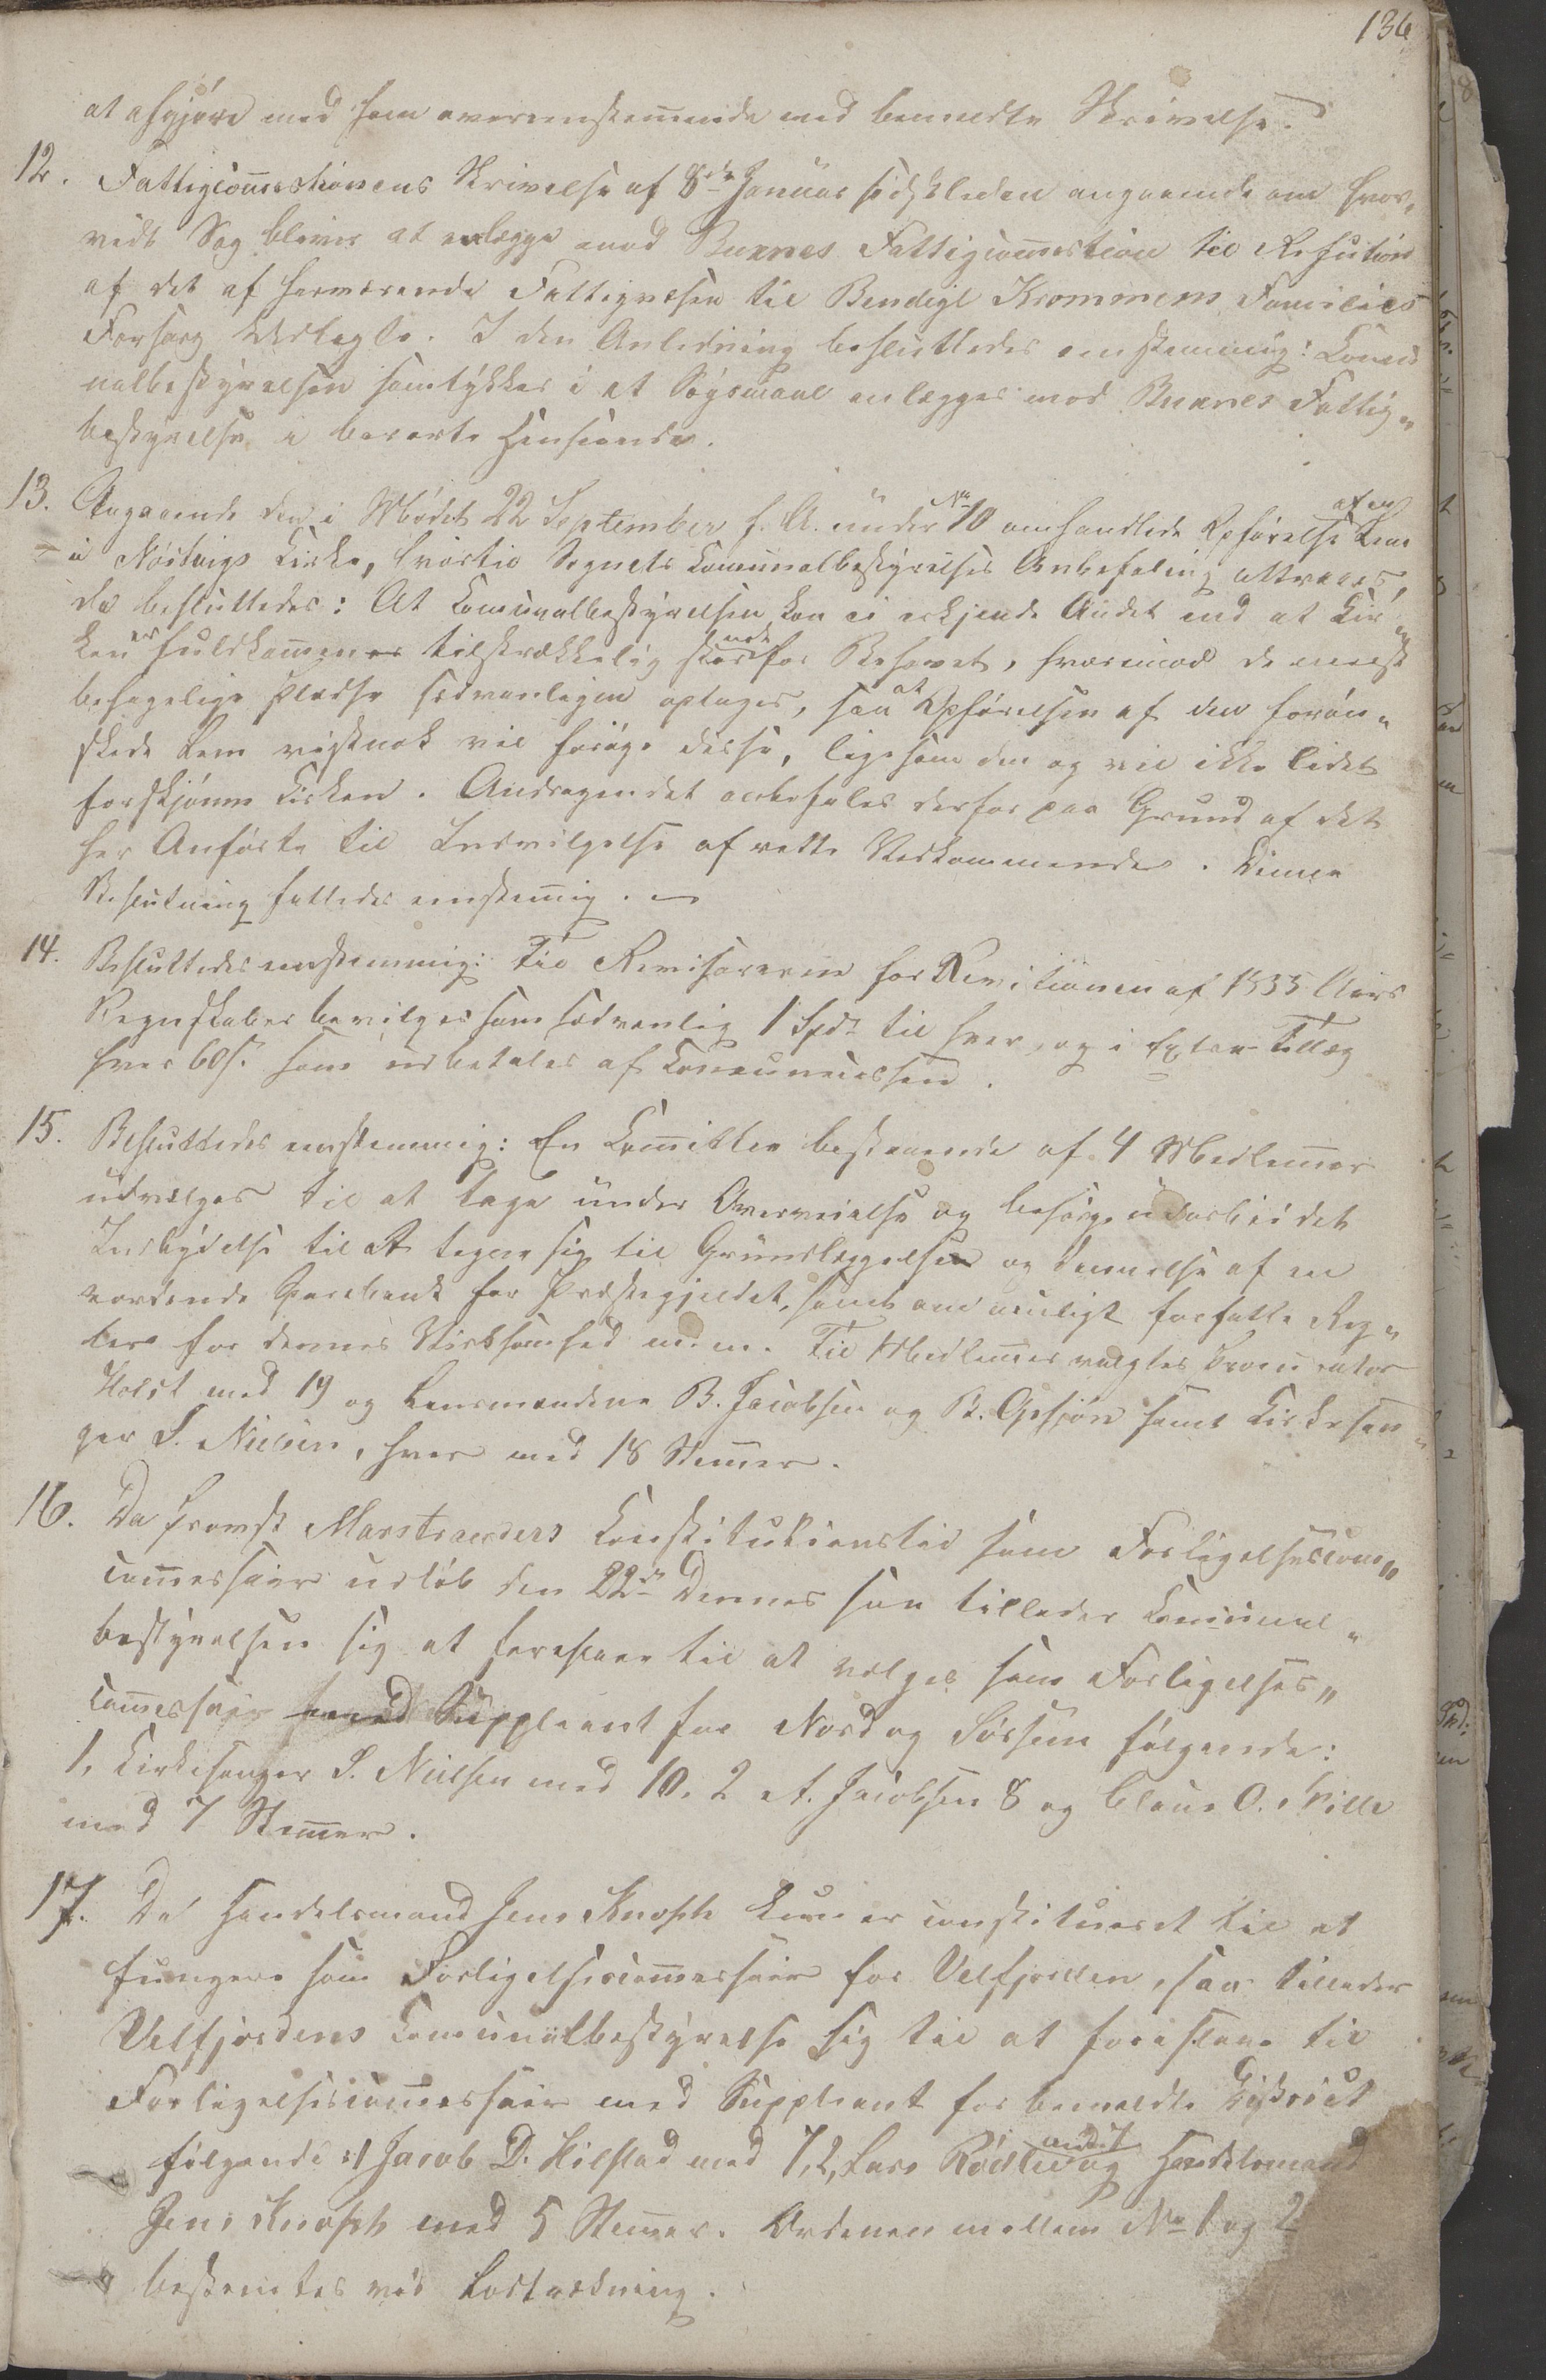 136
at afgjøre med ham overeensstemmende med bemeldte Skrivelse.
12. Fattigcom̅isionens Skrivelse af 8de Januar sidstleden angaaende om hvor„
vidt Sag bliver at anlægge mod Buxnes Fattigcom̅istion til Refution
af det af herværende Fattigvæsen til Bendigt Krommens Families
Forsørg Udlagte. I den Anledning besluttedes eenstemmig: Commu
nalbestyrelsen samtykker i at Søgsmaal anlægges mod Buxnes Fattig„
bestyrelse i berørte Henseende.
13. Angaaende den i Mødet 22 September f. A. under No 10 omhandlede Opførelse af en Lem
i Nøstvigs Kirke, hvortil Sognets Communalbestyrelses Anbefaling attraaes,
da besluttedes: At Communalbestyrelsen kan ei erkjende Andet end at Kir„
ken er fuldkom̅en tilstrækkelig for Behovet, hvorimod de meest
behagelige Pladse sædvanligen optages, saa at Opførelsen af den forøn„
skede Lem vistnok vil forøge disse, ligesom den og vil ikke lidet
forskjønne Kirken. Andragendet anbefales derfor paa Grund af det
her Anførte til Indvilgelse af rette Vedkommende. Denne
Beslutning fattedes eenstem̅ig.
14. Besluttedes eenstemmig: Til Revisorerne for Revitionen af 1835 Aars
Regnskaber bevilges som sædvanlig 1 Spd til hver, og i Extra-Tillæg
hver 60 s. som udbetales af Communecassen.
15. Besluttedes eenstemmig: En Com̅ittee bestaaende af 4 Medlem̅er
udvælges til at tage under Overveielse og besørge udarbeidet
Indbydelse til At tegne sig til Grundlæggelse og Dannelse af en
vordende Sparebank for Præstegjeldet, samt om muligt forfatte Reg„
ler for dennes Virksomhed m. m. Til Medlem̅er valgtes Procurator
Holst med 19 og Lensmændene B. Jacobsen og B. Opsjøn samt Kirkesan„
ger S. Nielsen, hver med 18 Stem̅er.
16. Da Provst Marstranders Constitutionstid som Forligelsescom„
com̅essair udløb den 22de Dennes saa tillader Communal„
bestyrelsen sig at foreslaae til at vælges som Forligelses„
com̅essair med Suppleant for Nord og Sørsem følgende:
1, Kirkesanger S. Nielsen med 10. 2 A. Jacobsen 8 og Claus O. Hille
med 7 Stem̅er.
17. Da Handelsmand Jens Knoph kun er constitueret til at
fungere som Forligelsescom̅essair for Velfjorden, saa tillader
Velfjordens Communalbestyrelse sig til at foreslaae til
Forligelsescom̅essair med Suppleant for bemeldte District
følgende: 1 Jacob D. Hilstad med 7, 2, Lars Rødli med 7 og Handelsmand
Jens Knoph med 5 Stem̅er. Ordenen mellem No 1 og 2
bestemtes ved Lodtrækning.